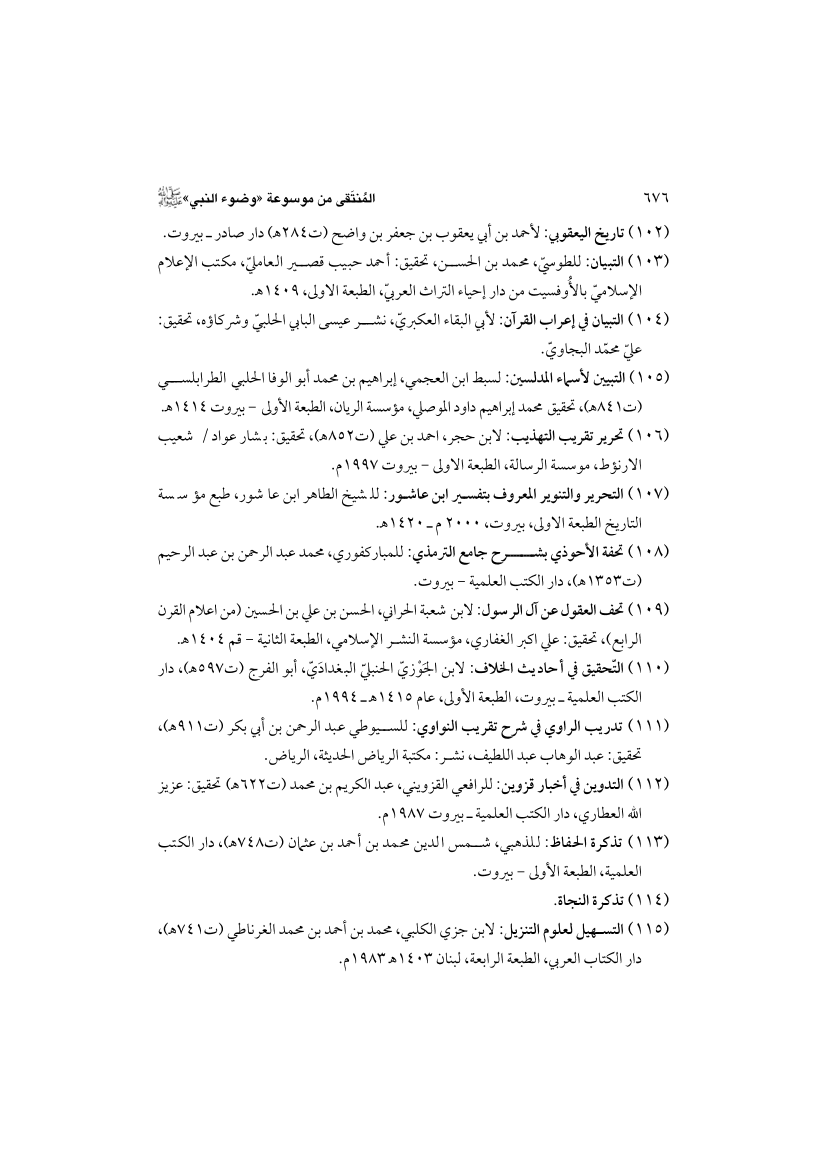 ٦٧٦
المُنتَقى من موسوعة «وضوء النبي» ﷺ
(١٠٢) تاريخ اليعقوبي: لأحمد بن أبي يعقوب بن جعفر بن واضح (ت٢٨٤هـ) دار صادر ـ بيروت.
(١٠٣) التبيان: للطوسيّ، محمد بن الحسـن، تحقيق: أحمد حبيب قصـير العامليّ، مكتب الإعلام
الإسلاميّ بالأُوفسيت من دار إحياء التراث العربيّ، الطبعة الاولى، ١٤٠٩هـ.
(١٠٤) التبيان في إعراب القرآن: لأبي البقاء العكبريّ، نشـر عيسى البابي الحلبيّ وشركاؤه، تحقيق:
عليّ محمّد البجاويّ.
(١٠٥) التبيين لأسماء المدلسين: لسبط ابن العجمي، إبراهيم بن محمد أبو الوفا الحلبي الطرابلسـي
(ت٨٤١هـ)، تحقيق محمد إبراهيم داود الموصلي، مؤسسة الريان، الطبعة الأولى – بيروت ١٤١٤هـ.
(١٠٦) تحرير تقريب التهذيب: لابن حجر، احمد بن علي (ت٨٥٢هـ)، تحقيق: بشار عواد/ شعيب
الارنؤط، موسسة الرسالة، الطبعة الاولى – بيروت ١٩٩٧م.
(١٠٧) التحرير والتنوير المعروف بتفسـير ابن عاشـور: للشيخ الطاهر ابن عاشور، طبع مؤسسة
التاريخ الطبعة الاولى، بيروت، ٢٠٠٠م ـ ١٤٢٠هـ.
(١٠٨) تحفة الأحوذي بشـرح جامع الترمذي: للمباركفوري، محمد عبد الرحمن بن عبد الرحيم
(ت١٣٥٣هـ)، دار الكتب العلمية – بيروت.
(١٠٩) تحف العقول عن آل الرسول: لابن شعبة الحراني، الحسن بن علي بن الحسين (من اعلام القرن
الرابع)، تحقيق: علي اكبر الغفاري، مؤسسة النشـر الإسلامي، الطبعة الثانية – قم ١٤٠٤هـ.
(١١٠) التّحقيق في أحاديث الخلاف: لابن الجَوْزيّ الحنبليّ البغدادَيّ، أبو الفرج (ت٥٩٧هـ)، دار
الكتب العلمية ـ بيروت، الطبعة الأولى، عام ١٤١٥هـ ـ ١٩٩٤م.
(١١١) تدريب الراوي في شرح تقريب النواوي: للسـيوطي عبد الرحمن بن أبي بكر (ت٩١١هـ)،
تحقيق: عبد الوهاب عبد اللطيف، نشـر: مكتبة الرياض الحديثة، الرياض.
(١١٢) التدوين في أخبار قزوين: للرافعي القزويني، عبد الكريم بن محمد (ت٦٢٢هـ) تحقيق: عزيز
الله العطاري، دار الكتب العلمية ـ بيروت ١٩٨٧م.
(١١٣) تذكرة الحفاظ: للذهبي، شـمس الدين محمد بن أحمد بن عثمان (ت٧٤٨هـ)، دار الكتب
العلمية، الطبعة الأولى – بيروت.
(١١٤) تذكرة النجاة.
(١١٥) التسـهيل لعلوم التنزيل: لابن جزي الكلبي، محمد بن أحمد بن محمد الغرناطي (ت٧٤١هـ)،
دار الكتاب العربي، الطبعة الرابعة، لبنان ١٤٠٣هـ ١٩٨٣م.